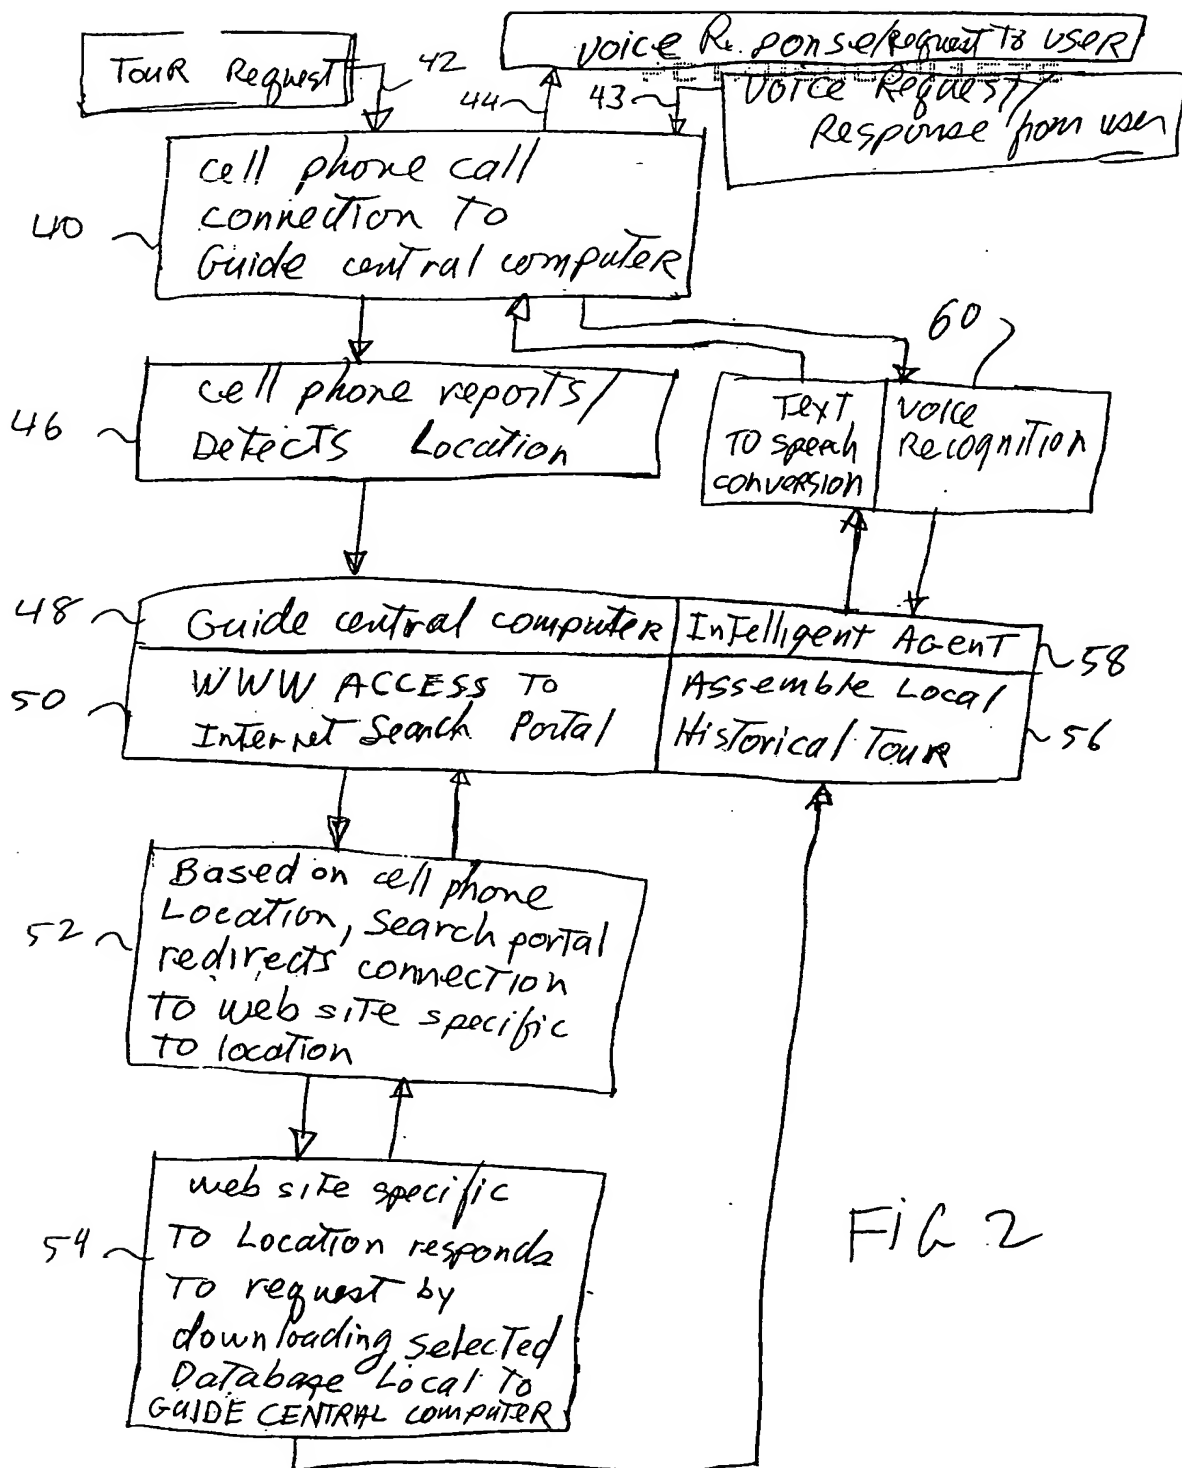 Tour Request
42
44
43
Voice Response/Request To User
Voice Request/
Response from user
40
Cell phone call
connection To
Guide central computer
60
46
Cell phone reports/
Detects Location
Text
To speech
conversion
Voice
Recognition
48
Guide central computer
Intelligent Agent
58
50
WWW Access To
Internet Search Portal
Assemble Local
Historical Tour
56
52
Based on cell phone
Location, Search portal
redirects connection
To web site specific
To location
54
web site specific
To Location responds
To request by
downloading selected
Database Local To
GUIDE CENTRAL Computer
FIG 2